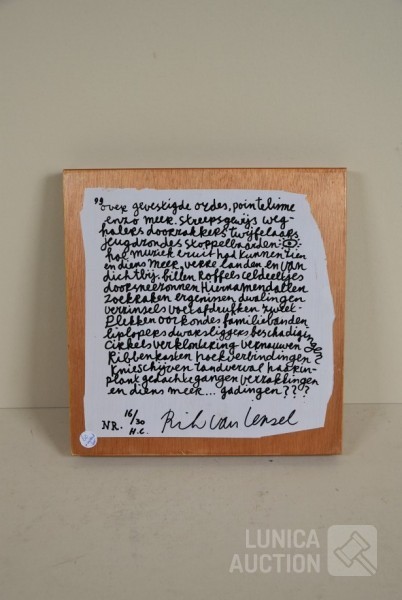 "over gevestigde ordes, pointelisme
enzo meer. streepsgewijs weg-
halers doorrakkers twijfelaars
jeugdzondes stoppelbaarden
hoe muziek eruit had kunnen zien
en diens meer, verre landen en van
dichtbij. billen Roffels celdeeltjes
doorsneezonnen Hiernamendatten
zoekraken ergenissen dwalingen
verzinsels voetafdrukken zweet-
plekken oorkondes familiebanden
liplopers dwarsliggers beschadigingen
cirkels verklontering vernauwen
Ribbenkasten hoekverbindingen
knieschijven tandverval
plank gedachtegangen verzakkingen
en diens meer.... gadingen???
NR. 16/30
H.C.
Rik van Iersel
LUNICA
AUCTION